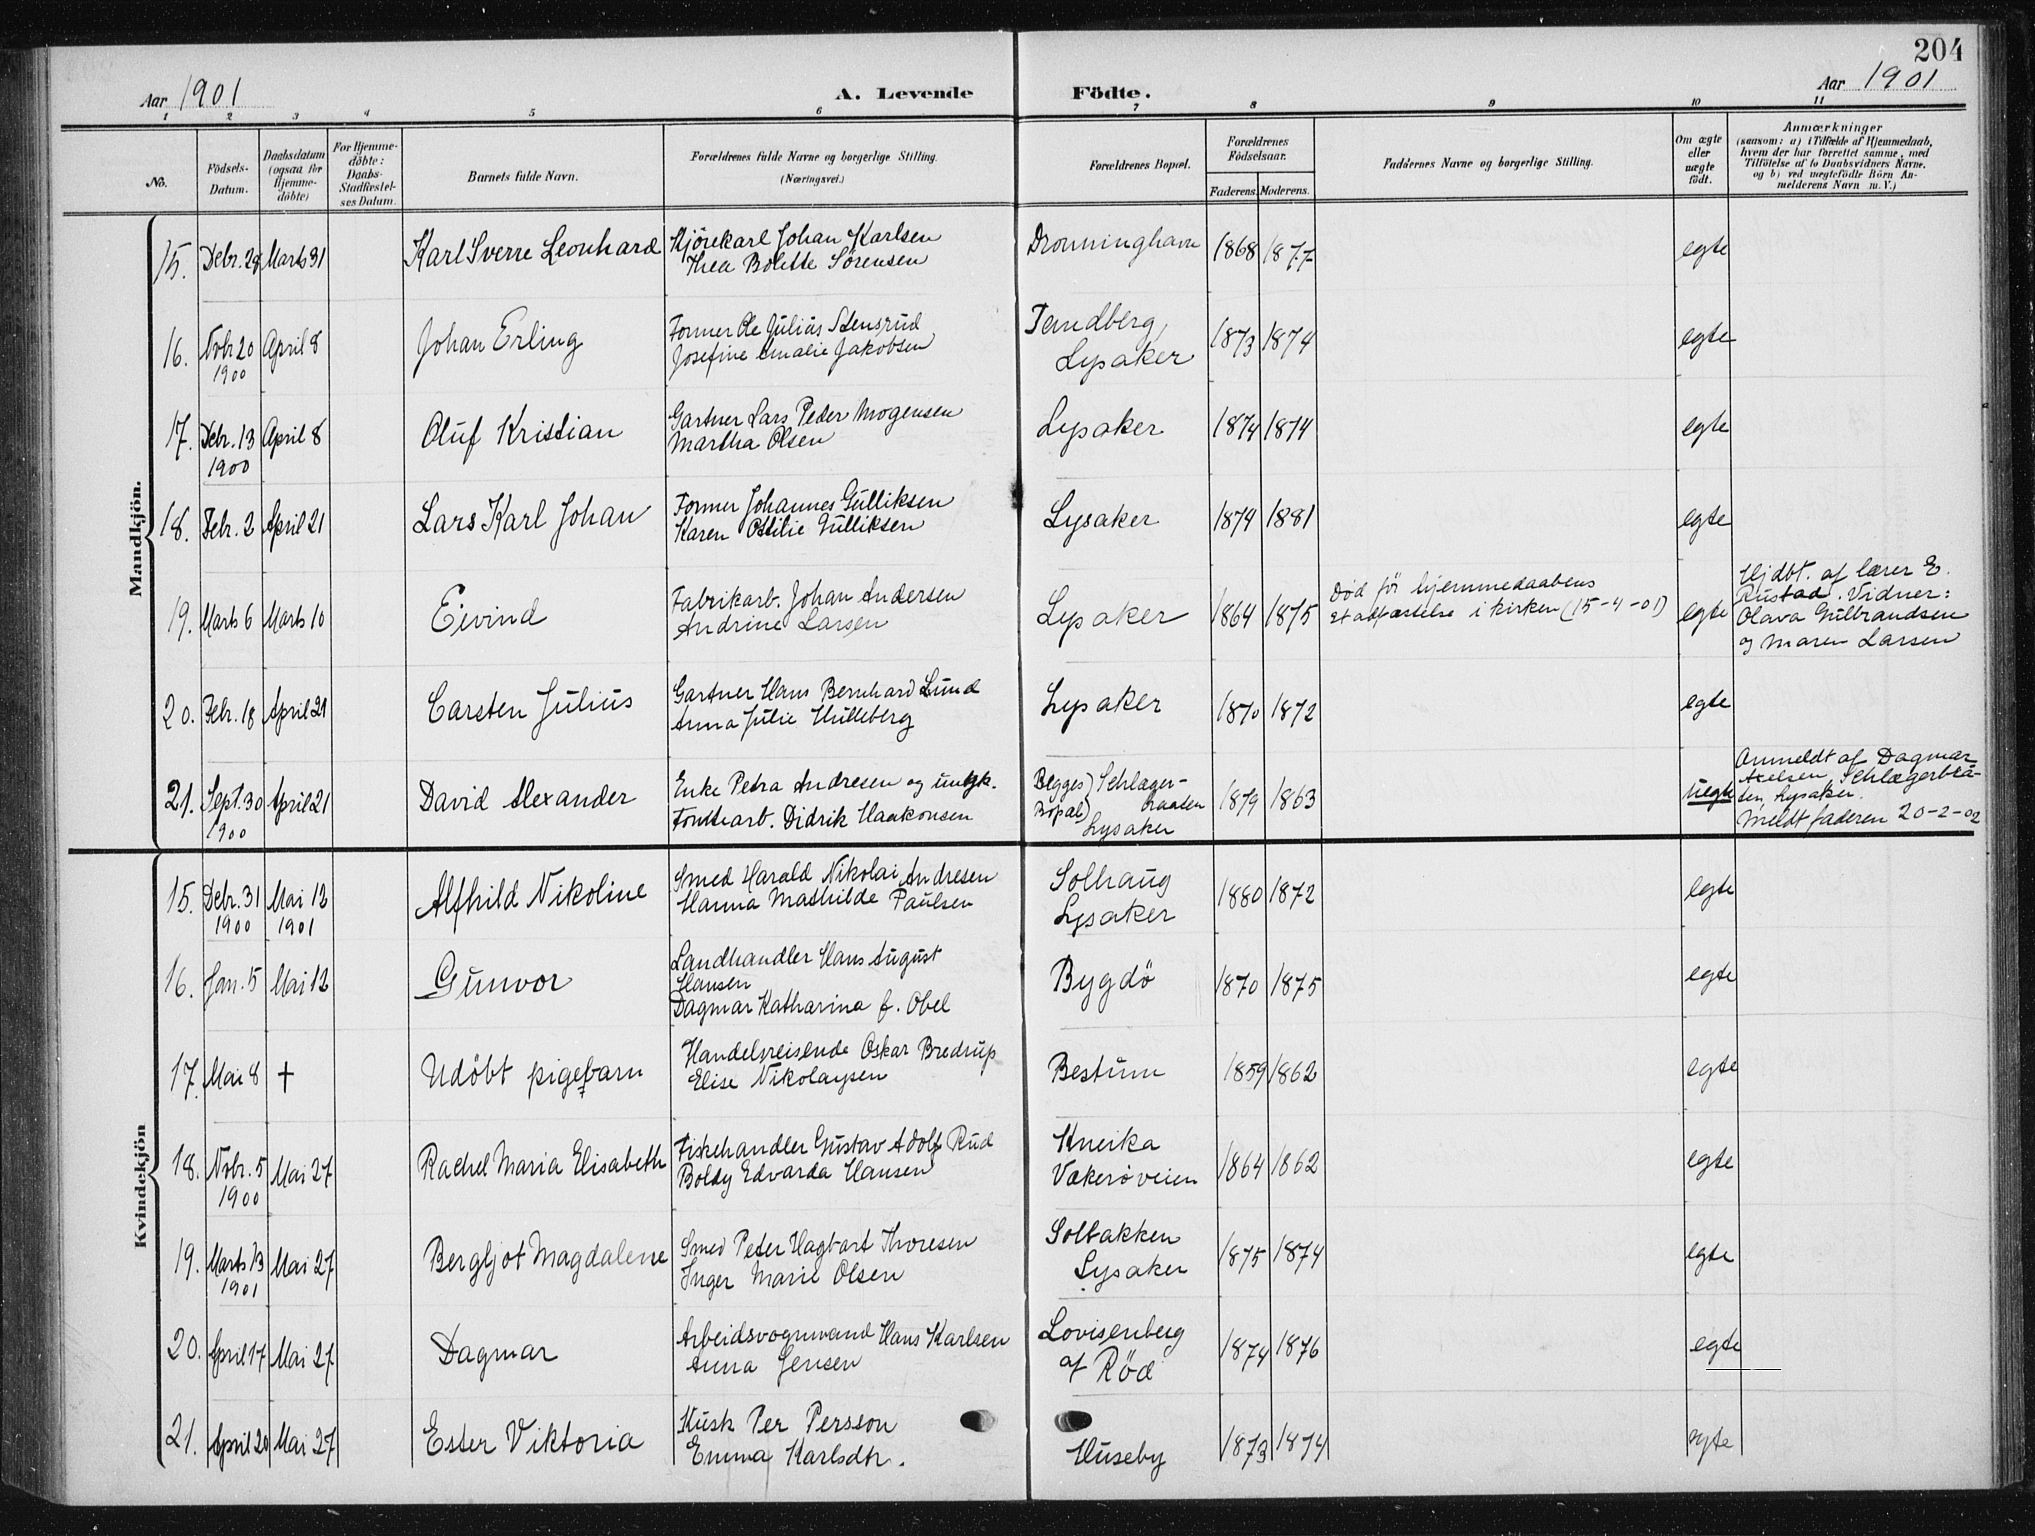 204
Aar 1901 A. Levende Födte. Aar 1901
1 2 3 4 5 6 7 8 9 10 11
No.
Födsels-
Datum.
Daabsdatum
(ogsaa for
Hjemme-
döbte)
For Hjemme-
döbte:
Daabs-
Stadfæstel-
ses Datum.
Barnets fulde Navn.
Forældrenes fulde Navne og borgerlige Stilling.
(Næringsvei.)
Forældrenes Bopæl.
Forældrenes
Födselsaar.
Faderens. Moderens.
Faddernes Navne og borgerlige Stilling.
Om ægte
eller
uægte
födt.
Anmærkninger
(saasom: a) i Tilfælde af Hjemmedaab,
hvem der har forrettet samme, med
Tilföielse af to Daabsvidners Navne.
og b) ved uægtefödte Börn An-
melderens Navn m. V.)
Mandkjön.
15. Debr. 29 Marts 31 Karl Sverre Leonhard Kjörekarl Johan Karlsen Dronninghavn 1868 1877 egte
Thea Bolette Sörensen
16. Nvbr 20 April 8 Johan Erling Former Ole Julius Stensrud Tandberg, 1873 1874 egte
1900 Josefine Amalie Jakobsen Lysaker
17. Debr. 13 April 8 Oluf Kristian Gartner Lars Peder Mogensen Lysaker 1874 1874 egte
1900 Martha Olsen
18. Febr. 2 April 21 Lars Karl Johan Former Johannes Gulliksen Lysaker 1874 1881 egte
Karen Ottilie Gulliksen
19. Marts 6 Marts 10 Eivind Fabrikarb. Johan Andersen Lysaker 1864 1875 Död för hjemmedaabens egte Hjdbt. af lærer E.
Andrine Larsen Stadfæstelse i kirken (15-4-01) Rustad. Vidner:
Olava Gulbrandsen
og Maren Larsen
20. Febr. 18 April 21 Carsten Julius Gartner Hans Bernhard Lund Lysaker 1870 1872 egte
Anna Julie Hulleberg
21. Sept. 30 April 21 David Alexander Enke Petra Andresen og ungk. Begges) Schlager- 1879 1863 uegte Anmeldt af Dagmar
1900 Didrik Haakonsen Bopæl) Lysaker Axelsen,
Lysaker.
Meldt faderen 20-2-02
Kvindekjön
15. Debr. 31 Mai 12 Alfhild Nikoline Smed Harald Nikolai Andresen Solhaug 1880 1872 egte
1900 1901 Hanna Mathilde Paulsen Lysaker
16. Jan. 5 Mai 12 Gunvor Landhandler Hans August Bygdö 1870 1875 egte
Hansen
Dagmar Katharina f. Obel
17. Mai 8 † Udöbt pigebarn Handelsreisende Oskar Bredrup Bestum 1859 1862 egte
Elise Nikolaysen
18. Nvbr. 5 Mai 27 Rachel Maria Elisabeth Fiskehandler Gustav Adolf Rud Kneika 1864 1862 egte
1900 Edvarda Hansen Vækeröveien
19. Marts 13 Mai 27 Bergljot Magdalene Smed Peter Hagbart Thoresen Solbakken 1875 1874 egte
1901 Inger Marie Olsen Lysaker
20. April 17 Mai 27 Dagmar Arbeidsvognmand Hans Karlsen Lovisenberg 1874 1876 egte
Anna Jensen af Röd
21. April 20 Mai 27 Ester Viktoria Kusk Per Persson Huseby 1873 1874 egte
Emma Karlsdtr.